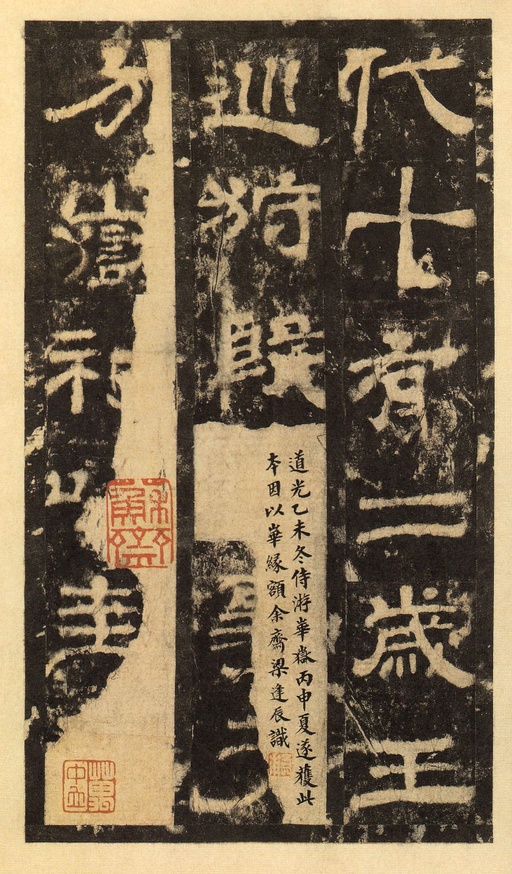 代十有二歲王
巡狩殷
方嶽祀以圭
道光乙未冬侍游華嶽丙申夏遂獲此
本因以華緣額余齋梁逢辰識